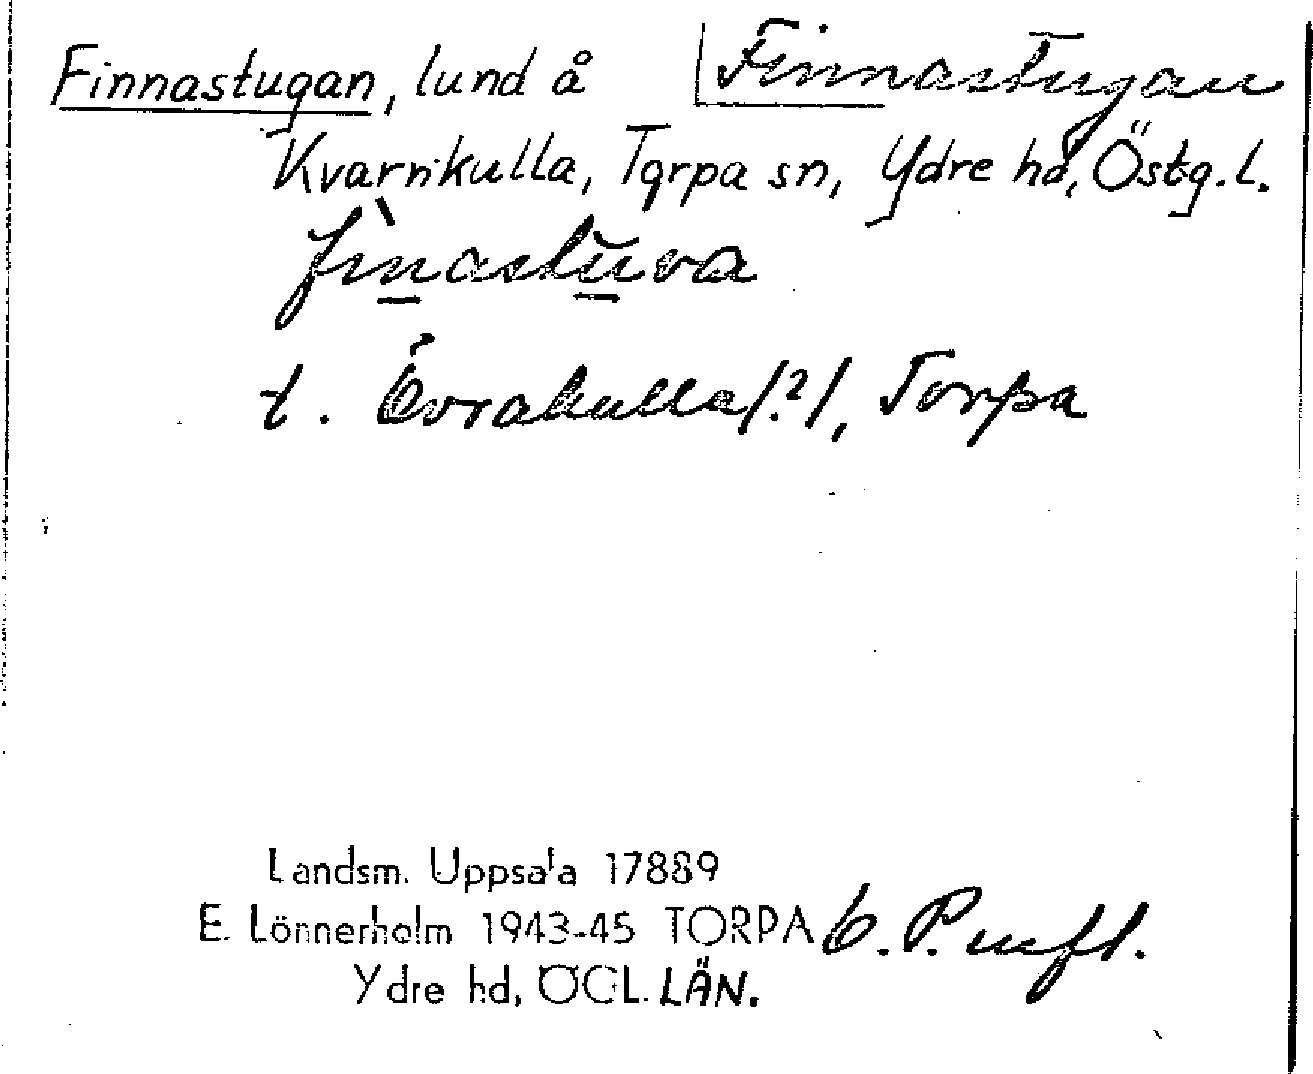 Finnastugan, lund å Finnastugan
Kvarnkulla, Torpa sn, Ydre hd, Östg. l.
finastuva
t. Övrakulla(?), Torpa
Landsm. Uppsala 17889
E. Lönnerholm 1943-45 TORPA
Ydre hd, ÖGL. LÄN.